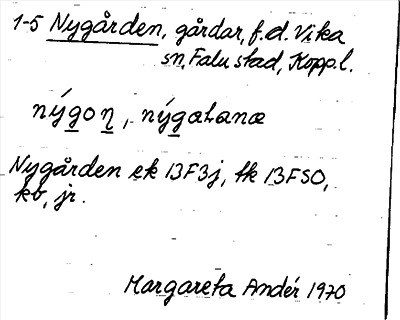 1-5 Nygården, gårdar, f.d. Vika
sn, Falu stad, Kopp.l.
nýgon̲, nýgaLanæ
Nygården ek 13F3j, tk 13FSO,
kb, jr.
Margareta Andér 1970